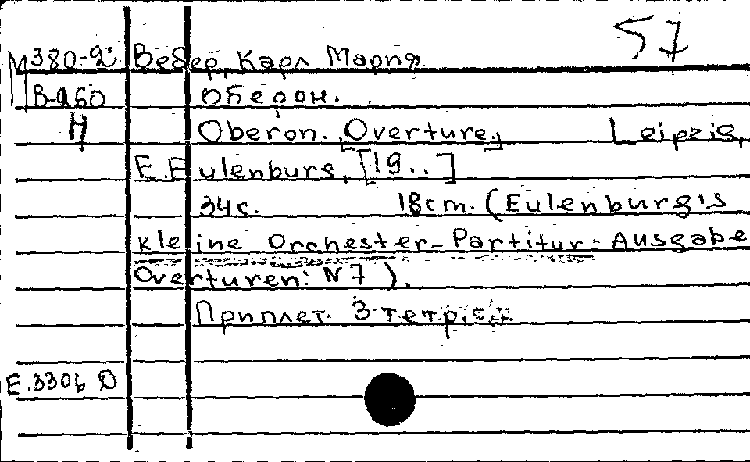 57
М380-2 Вебер, Карл Мария
В-260 Оберон.
Н Oberon. [Overture.] Leipzig,
E. Eulenburg, [19..]
34с. 18cm. (Eulenburg's
kleine Orchester-Partitur-Ausgabe
Overturen: N7).
Приплет. 3 тетр.
E.3306 D